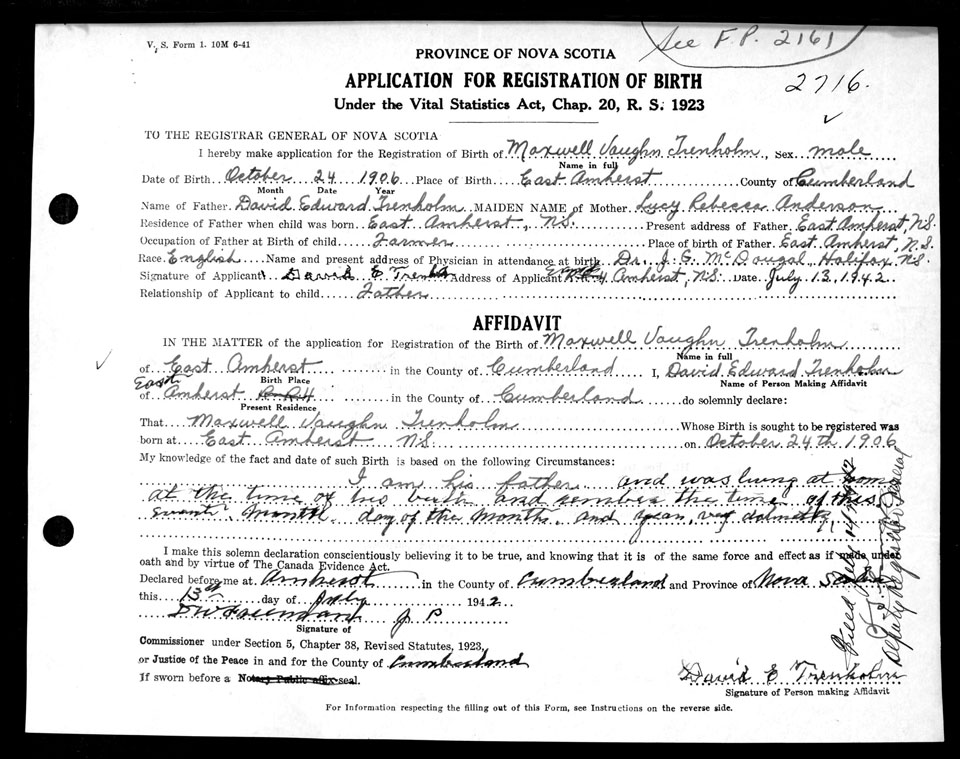 V. S. Form 1. 10M 6-41
See F.P. 2161
PROVINCE OF NOVA SCOTIA
APPLICATION FOR REGISTRATION OF BIRTH
2716.
Under the Vital Statistics Act, Chap. 20, R. S. 1923
TO THE REGISTRAR GENERAL OF NOVA SCOTIA
I hereby make application for the Registration of Birth of Maxwell Vaughn Trenholm, Sex male
Name in full
Date of Birth October 24 1906 Place of Birth East Amherst County of Cumberland
Month Date Year
Name of Father David Edward Trenholm MAIDEN NAME of Mother Lucy Rebecca Anderson
Residence of Father when child was born East Amherst, N.S. Present address of Father East Amherst, N.S.
Occupation of Father at Birth of child Farmer Place of birth of Father East Amherst, N.S.
Race English Name and present address of Physician in attendance at birth Dr. J. G. McDougal, Halifax N.S.
Signature of Applicant David E Trenholm Address of Applicant Amherst, N.S. Date July 13, 1942
Relationship of Applicant to child Father
AFFIDAVIT
IN THE MATTER of the application for Registration of the Birth of Maxwell Vaughn Trenholm
Name in full
of East Amherst in the County of Cumberland I, David Edward Trenholm
Birth Place Name of Person Making Affidavit
of East Amherst in the County of Cumberland do solemnly declare:
Present Residence
That Maxwell Vaughn Trenholm Whose Birth is sought to be registered was
born at East Amherst N.S. on October 24th 1906
My knowledge of the fact and date of such Birth is based on the following Circumstances:
I am his father and was living at
at the time of his birth and the time of this
month day of the month and year, very
I make this solemn declaration conscientiously believing it to be true, and knowing that it is of the same force and effect as if made under
oath and by virtue of The Canada Evidence Act.
Declared before me at Amherst in the County of Cumberland and Province of Nova Scotia
this 13th day of July 1942
J P
Signature of
Commissioner under Section 5, Chapter 38, Revised Statutes, 1923,
or Justice of the Peace in and for the County of Cumberland
If sworn before a Notary Public affix seal.
David E Trenholm
Signature of Person making Affidavit
For Information respecting the filling out of this Form, see Instructions on the reverse side.
Filed July 14 1942
Deputy Registrar General